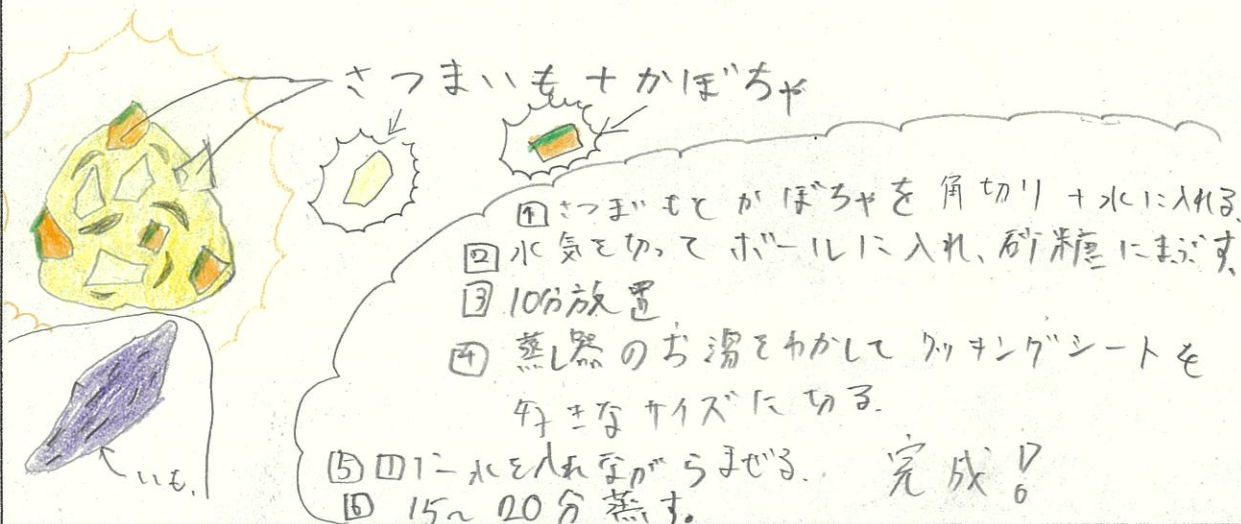 さつまいも+かぼちゃ
1 さつまいもとかぼちゃを角切り+水に入れる。
2 水気を切ってボールに入れ、砂糖にまぶす。
3 10分放置
4 蒸し器のお湯をわかしてクッキングシートを
好きなサイズに切る。
5 1に水を入れながらまぜる。
6 15〜20分蒸す。
完成!
いも。